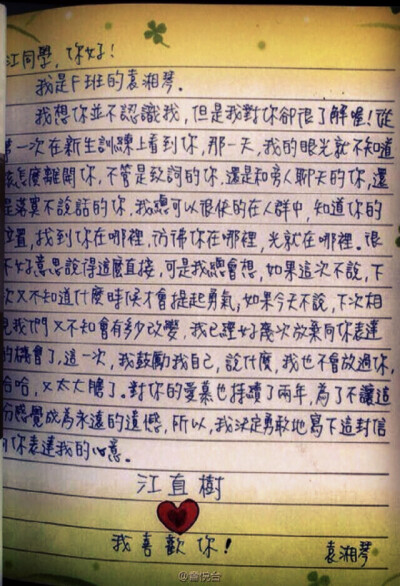 江同學,你好!
我是F班的袁湘琴.
我想你並不認識我,但是我對你卻很了解喔!從
第一次在新生訓練上看到你,那一天,我的眼光就不知道
該怎麼離開你,不管是致詞的你,還是和旁人聊天的你,還
是落寞不說話的你,我總可以很快的在人群中,知道你的
位置,找到你在哪裡,彷彿你在哪裡,光就在哪裡.很
不好意思說得這麼直接,可是我總會想,如果這次不說,下
次又不知道什麼時候才會提起勇氣,如果今天不說,下次相
見我們又不知會有多少改變,我已經好幾次放棄向你表達
的機會了,這一次,我鼓勵我自己,說什麼,我也不會放過你,
哈哈,又太大膽了.對你的愛慕也持續了兩年,為了不讓這
份感覺成為永遠的遺憾,所以,我決定勇敢地寫下這封信
向你表達我的心意。
江直樹
我喜歡你! 袁湘琴